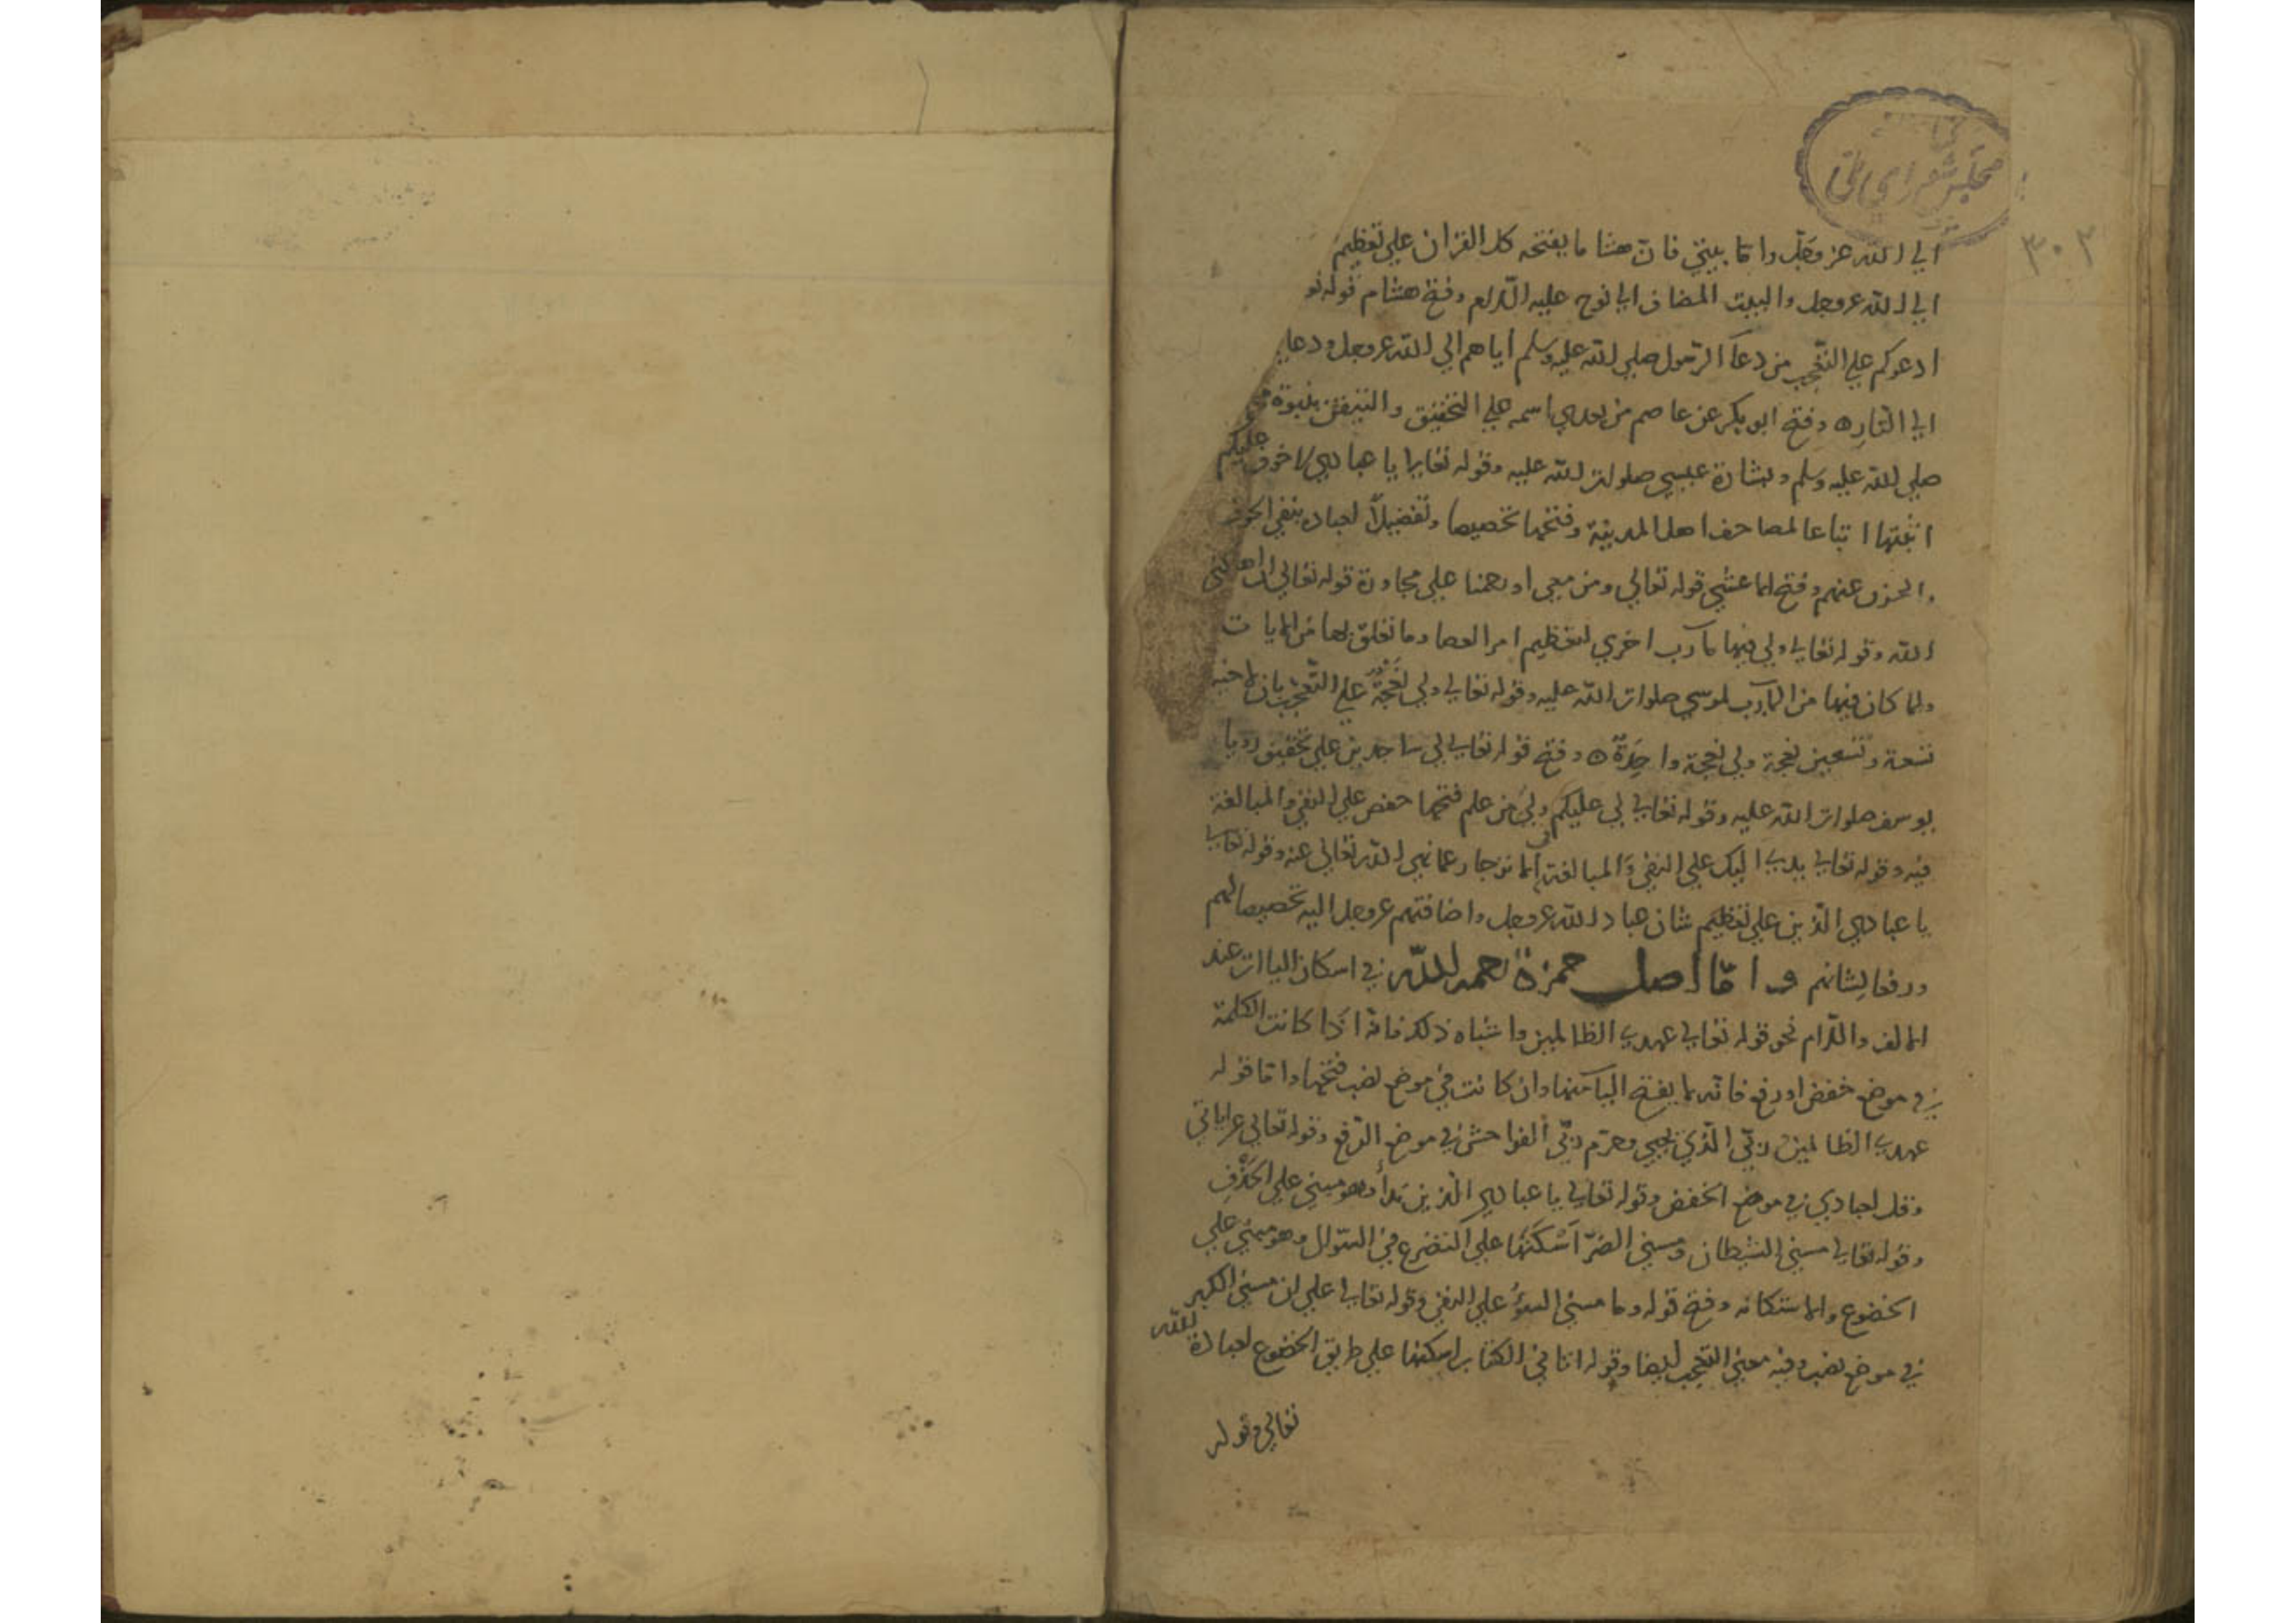 مجلس شورای ملی
٣٠٢
الي الله عز وجل واما بيتي فان هشاما يفتحه كل القران علي تعظيم
الي الله عز وجل والبيت المضاف الي نوح عليه السلام وفتح هشام قوله
ادعوكم علي التعجب من دعآ الرسول صلي الله عليه وسلم اياهم الي الله عز وجل ودعا
الي النار ه وفتح ابو بكر عن عاصم من بعدي اسمه علي التحقيق والتيقن بنبوة
صلي الله عليه وسلم وبشارة عيسي صلوات الله عليه وقوله تعالي يا عبادي لا خوف عليكم
اثبتها اتباعا لمصاحف اهل المدينة وفتحها تخصيصا وتفضيلاً لعباده بنفي الخوف
والحزن عنهم وفتح الاعشي قوله تعالي ومن معي او رحمنا علي مجاورة قوله تعالي ان اهلكني
الله وقوله تعالي ولي فيها مآرب اخري لتعظيم امر العصا وما تعلق بها من الايات
ولما كان فيها من المآرب لموسي صلوات الله عليه وقوله تعالي ولي نعجة علي التعجب بان لاخيه
تسعة وتسعين نعجة ولي نعجة واحدة ه وفتح قوله تعالي لي ساجدين علي تحقيق رويا
يوسف صلوات الله عليه وقوله تعالي لي عليكم ولي من علم فتحها حفص علي النفي والمبالغة
فيه وقوله تعالي يدي اليك علي النفي والمبالغة في الانزجار عما نهي الله تعالي عنه وقوله تعالي
يا عبادي الذين علي تعظيم شان عباد الله عز وجل واضافتهم عز وجل اليه تخصيصا لهم
ورفعا لشانهم واما اصل حمزة رحمه الله في اسكان الياات عند
الالف واللام نحو قوله تعالي عهدي الظالمين واشباه ذلك فانه اذا كانت الكلمة
في موضع خفض او رفع فانه لا يفتح اليآ منها وان كانت في موضع نصب فتحها واما قوله
عهدي الظالمين ربي الذي يحيي وحرم ربي الفواحش في موضع الرفع وقوله تعالي عن اياتي
وقل لعبادي في موضع الخفض وقوله تعالي يا عبادي الذين ندآ وهو مبني علي الحذف
وقوله تعالي مسني الشيطان ومسني الضر اسكنها علي التضرع في السوال وهو مبني علي
الخضوع والاستكانه وفتح قوله وما مسني السوء علي النفي وقوله تعالي علي ان مسني الكبر
في موضع نصب وفيه معني التعجب ايضا وقوله اتاني الكتاب اسكنها علي طريق الخضوع لعبادة الله
تعالي وقوله